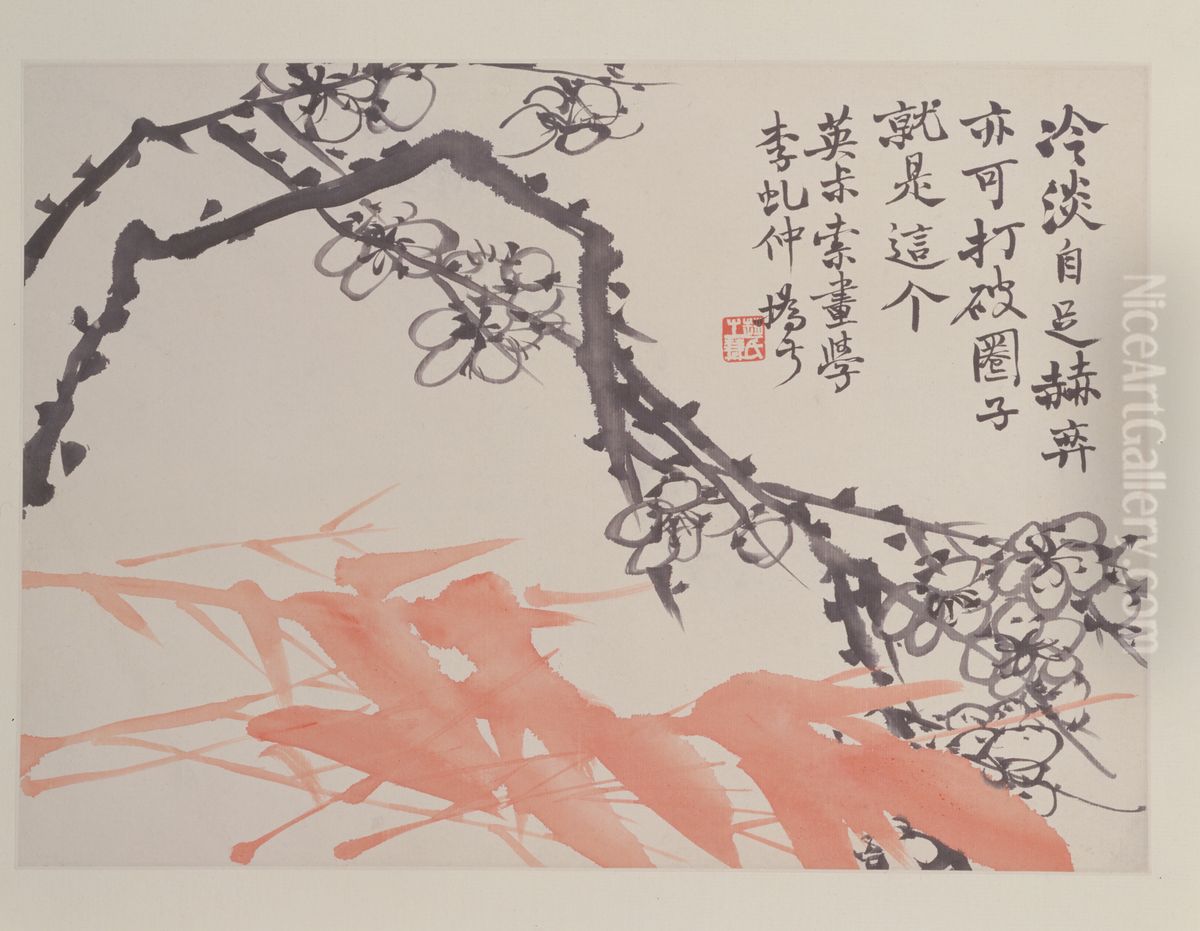 冷淡自足赫弈
亦可打破圈子
就是這个
英尗索畫學
李虬仲 撝尗
NiceArtGallery.com